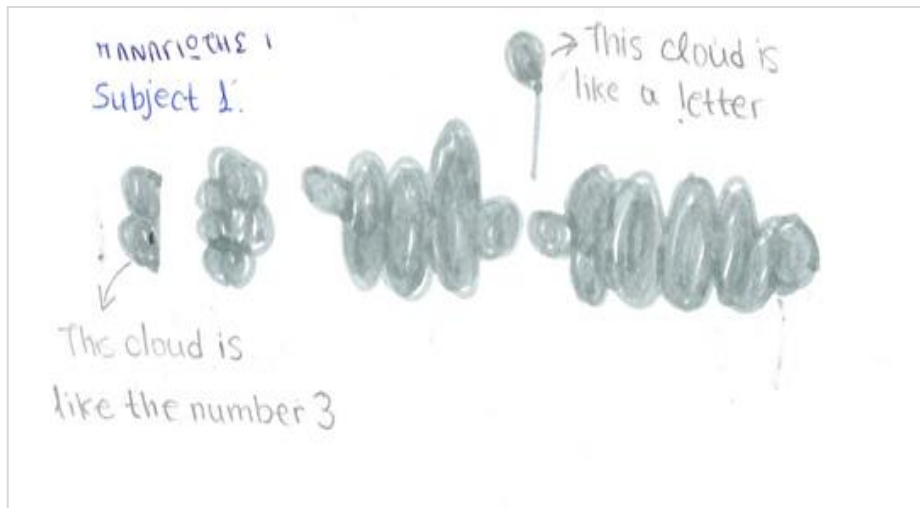 ΠΑΝΑΓΙΩΤΗΣ 1
Subject 1.
This cloud is
like a letter
This cloud is
like the number 3